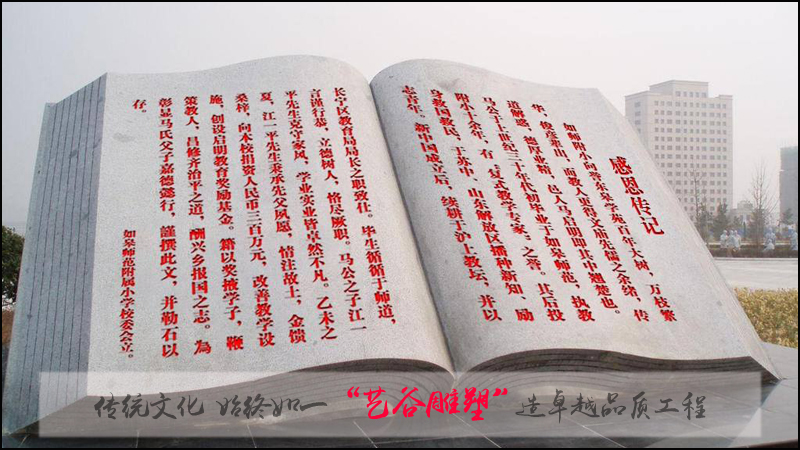 感恩传记
如师附小向誉东皋学苑百年大树，万枝繁
华，俊彦辈出，而教人更得文庙先儒之余绪，传
道解惑，德厚业精。邑人马启明即其中翘楚也。
马公于上世纪三十年代初毕业于如皋师范，执教
附小十余年，有“复式教学专家”之誉。其后投
身救国救民，于苏中、山东解放区播种新知、励
志青年。新中国成立后，续耕于沪上教坛，并以
长宁区教育局局长之职致仕。毕生循循于师道，
言谨行恭，立德树人，恪尽厥职。马公之子江一
平先生克守家风，学业实业皆卓然不凡。乙未之
夏，江一平先生秉承先父夙愿，情注故土，金馈
桑梓，向本校捐资人民币三百万元，改善教学设
施，创设启明教育奖励基金。籍以奖掖学子，鞭
策教人，昌修齐治平之道，酬兴乡报国之志。為
彰显马氏父子嘉德懿行，謹撰此文，并勒石以
存。
如皋师范附属小学校委会立。
传统文化 始终如一“艺谷雕塑”造卓越品质工程